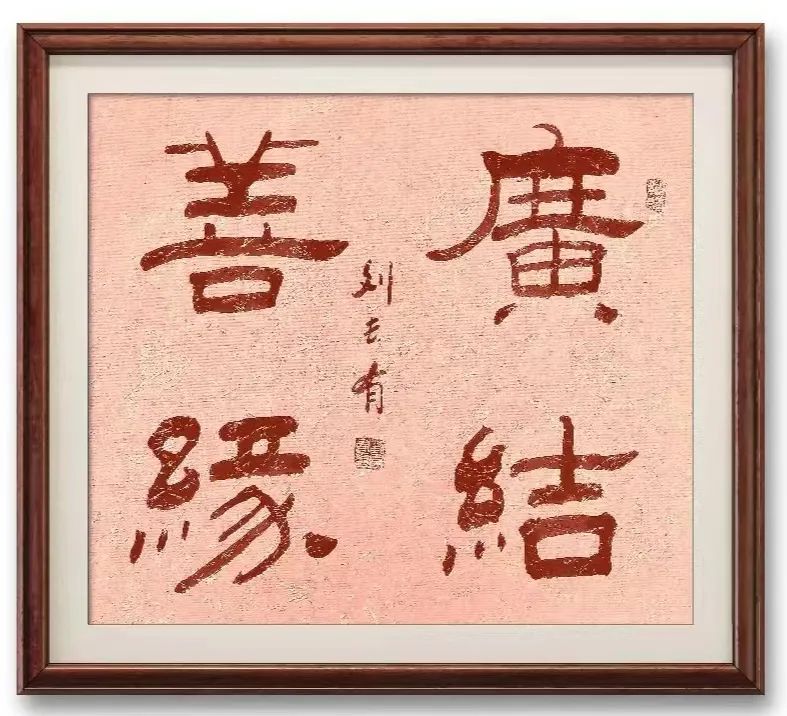 廣結
善緣
刘云有